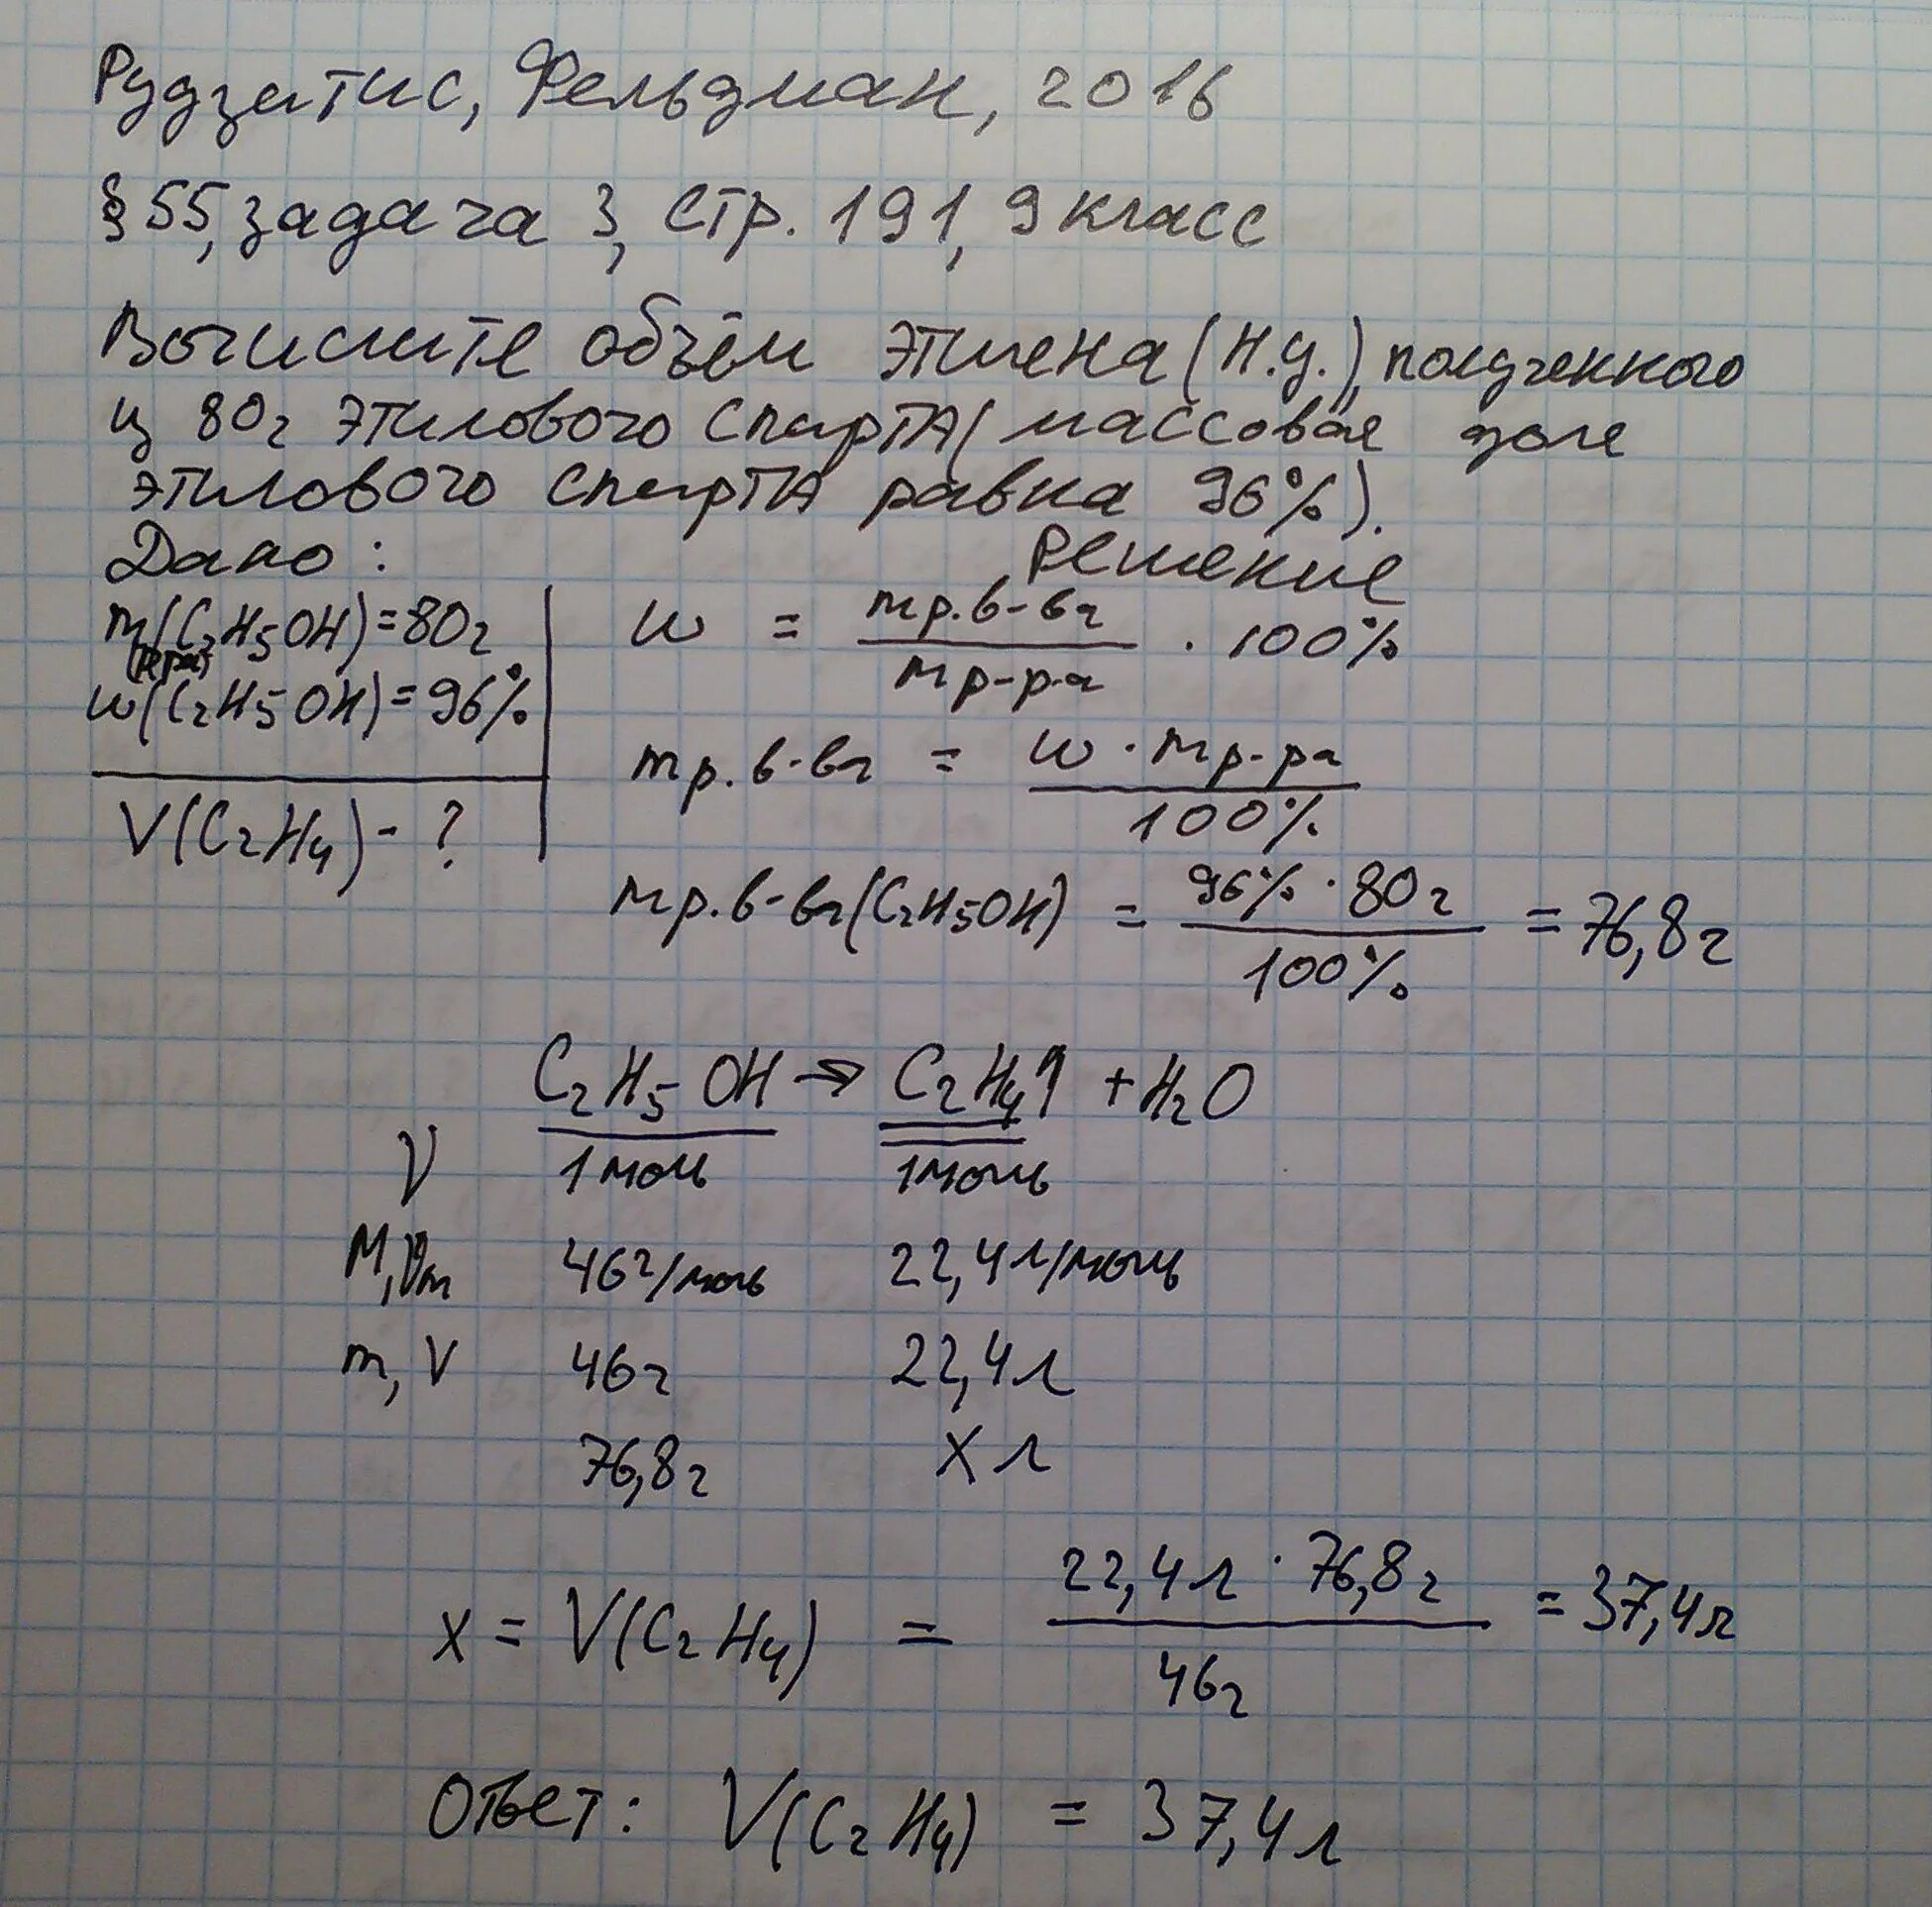 Рудзитис, Фельдман, 2016
§ 55, задача 3, стр. 191, 9 класс
Вычислите объём этилена (н.у.), полученного
из 80г этилового спирта (массовая доля
этилового спирта равна 96%).
Дано:
Решение
m(C₂H₅OH) = 80г
(р-ра)
w(C₂H₅OH) = 96%
V(C₂H₄) - ?
w = mр.в-ва / mр-ра · 100%
mр.в-ва = w · mр-ра / 100%
mр.в-ва(C₂H₅OH) = 96% · 80г / 100% = 76,8г
C₂H₅OH → C₂H₄↑ + H₂O
ν 1моль 1моль
M, Vm 46г/моль 22,4л/моль
m, V 46г 22,4л
76,8г x л
x = V(C₂H₄) = 22,4л · 76,8г / 46г = 37,4л
Ответ: V(C₂H₄) = 37,4л